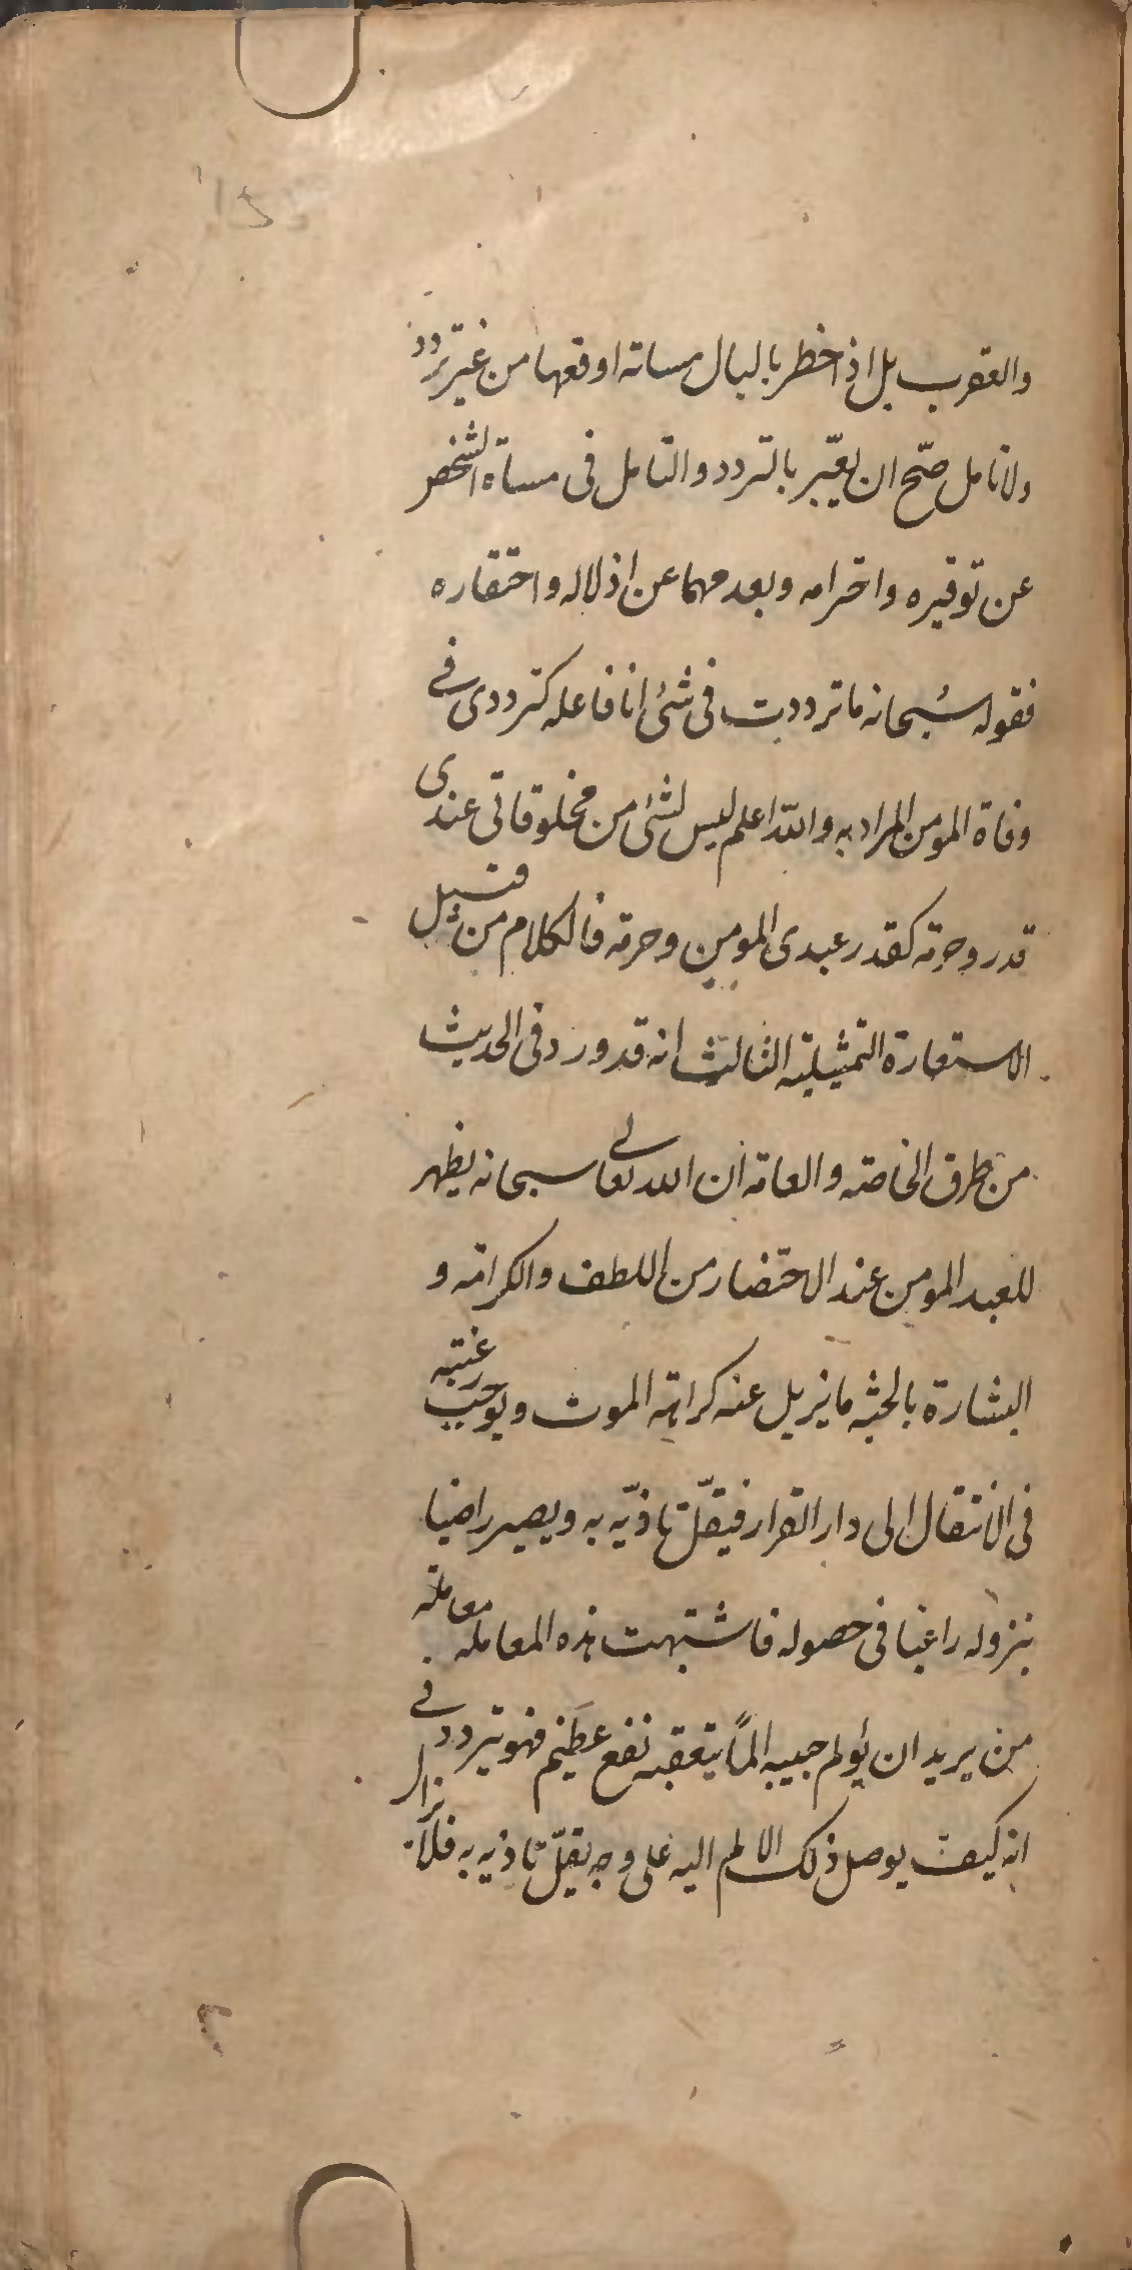 والعقرب بل اذا خطر بالبال مساته اوقعها من غير تردد
ولا تامل صحّ ان يعبّر بالتردد والتامل فى مساة الشخص
عن توقيره واحترامه وبعدمهما عن اذلاله واحتقاره
فقوله سبحانه ما ترددت فى شئ انا فاعله كترددى فے
وفاة المومن المراد به والله اعلم ليس لشئ من مخلوقاتى عندى
قدر وحرمة كقدر عبدى المومن وحرمة فالكلام من قبيل
الاستعارة التمثيلية الثالث انه قد ورد فى الحديث
من طرق الخاصة والعامة ان الله تعالے سبحانه يظهر
للعبد المومن عند الاحتضار من اللطف والكرامة و
البشارة بالجنة ما يزيل عنه كراهة الموت ويوجب رغبته
فى الانتقال الى دار القرار فيقلّ تاذيّه به ويصير راضيا
بنزوله راغبا فى حصوله فاشبهت هذه المعاملة معاملة
من يريد ان يؤلم حبيبه المًا يتعقبه نفع عظيم فهو يتردد فے
انه كيف يوصل ذلك الالم اليه على وجه يقلّ تاذيه به فلا يزال